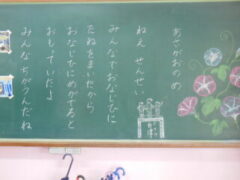 あさがおのめ
ねえ せんせい
みんなでおなじひに
たねをまいたから
おなじひにめがでると
おもっていたよ
みんな ちがうんだね